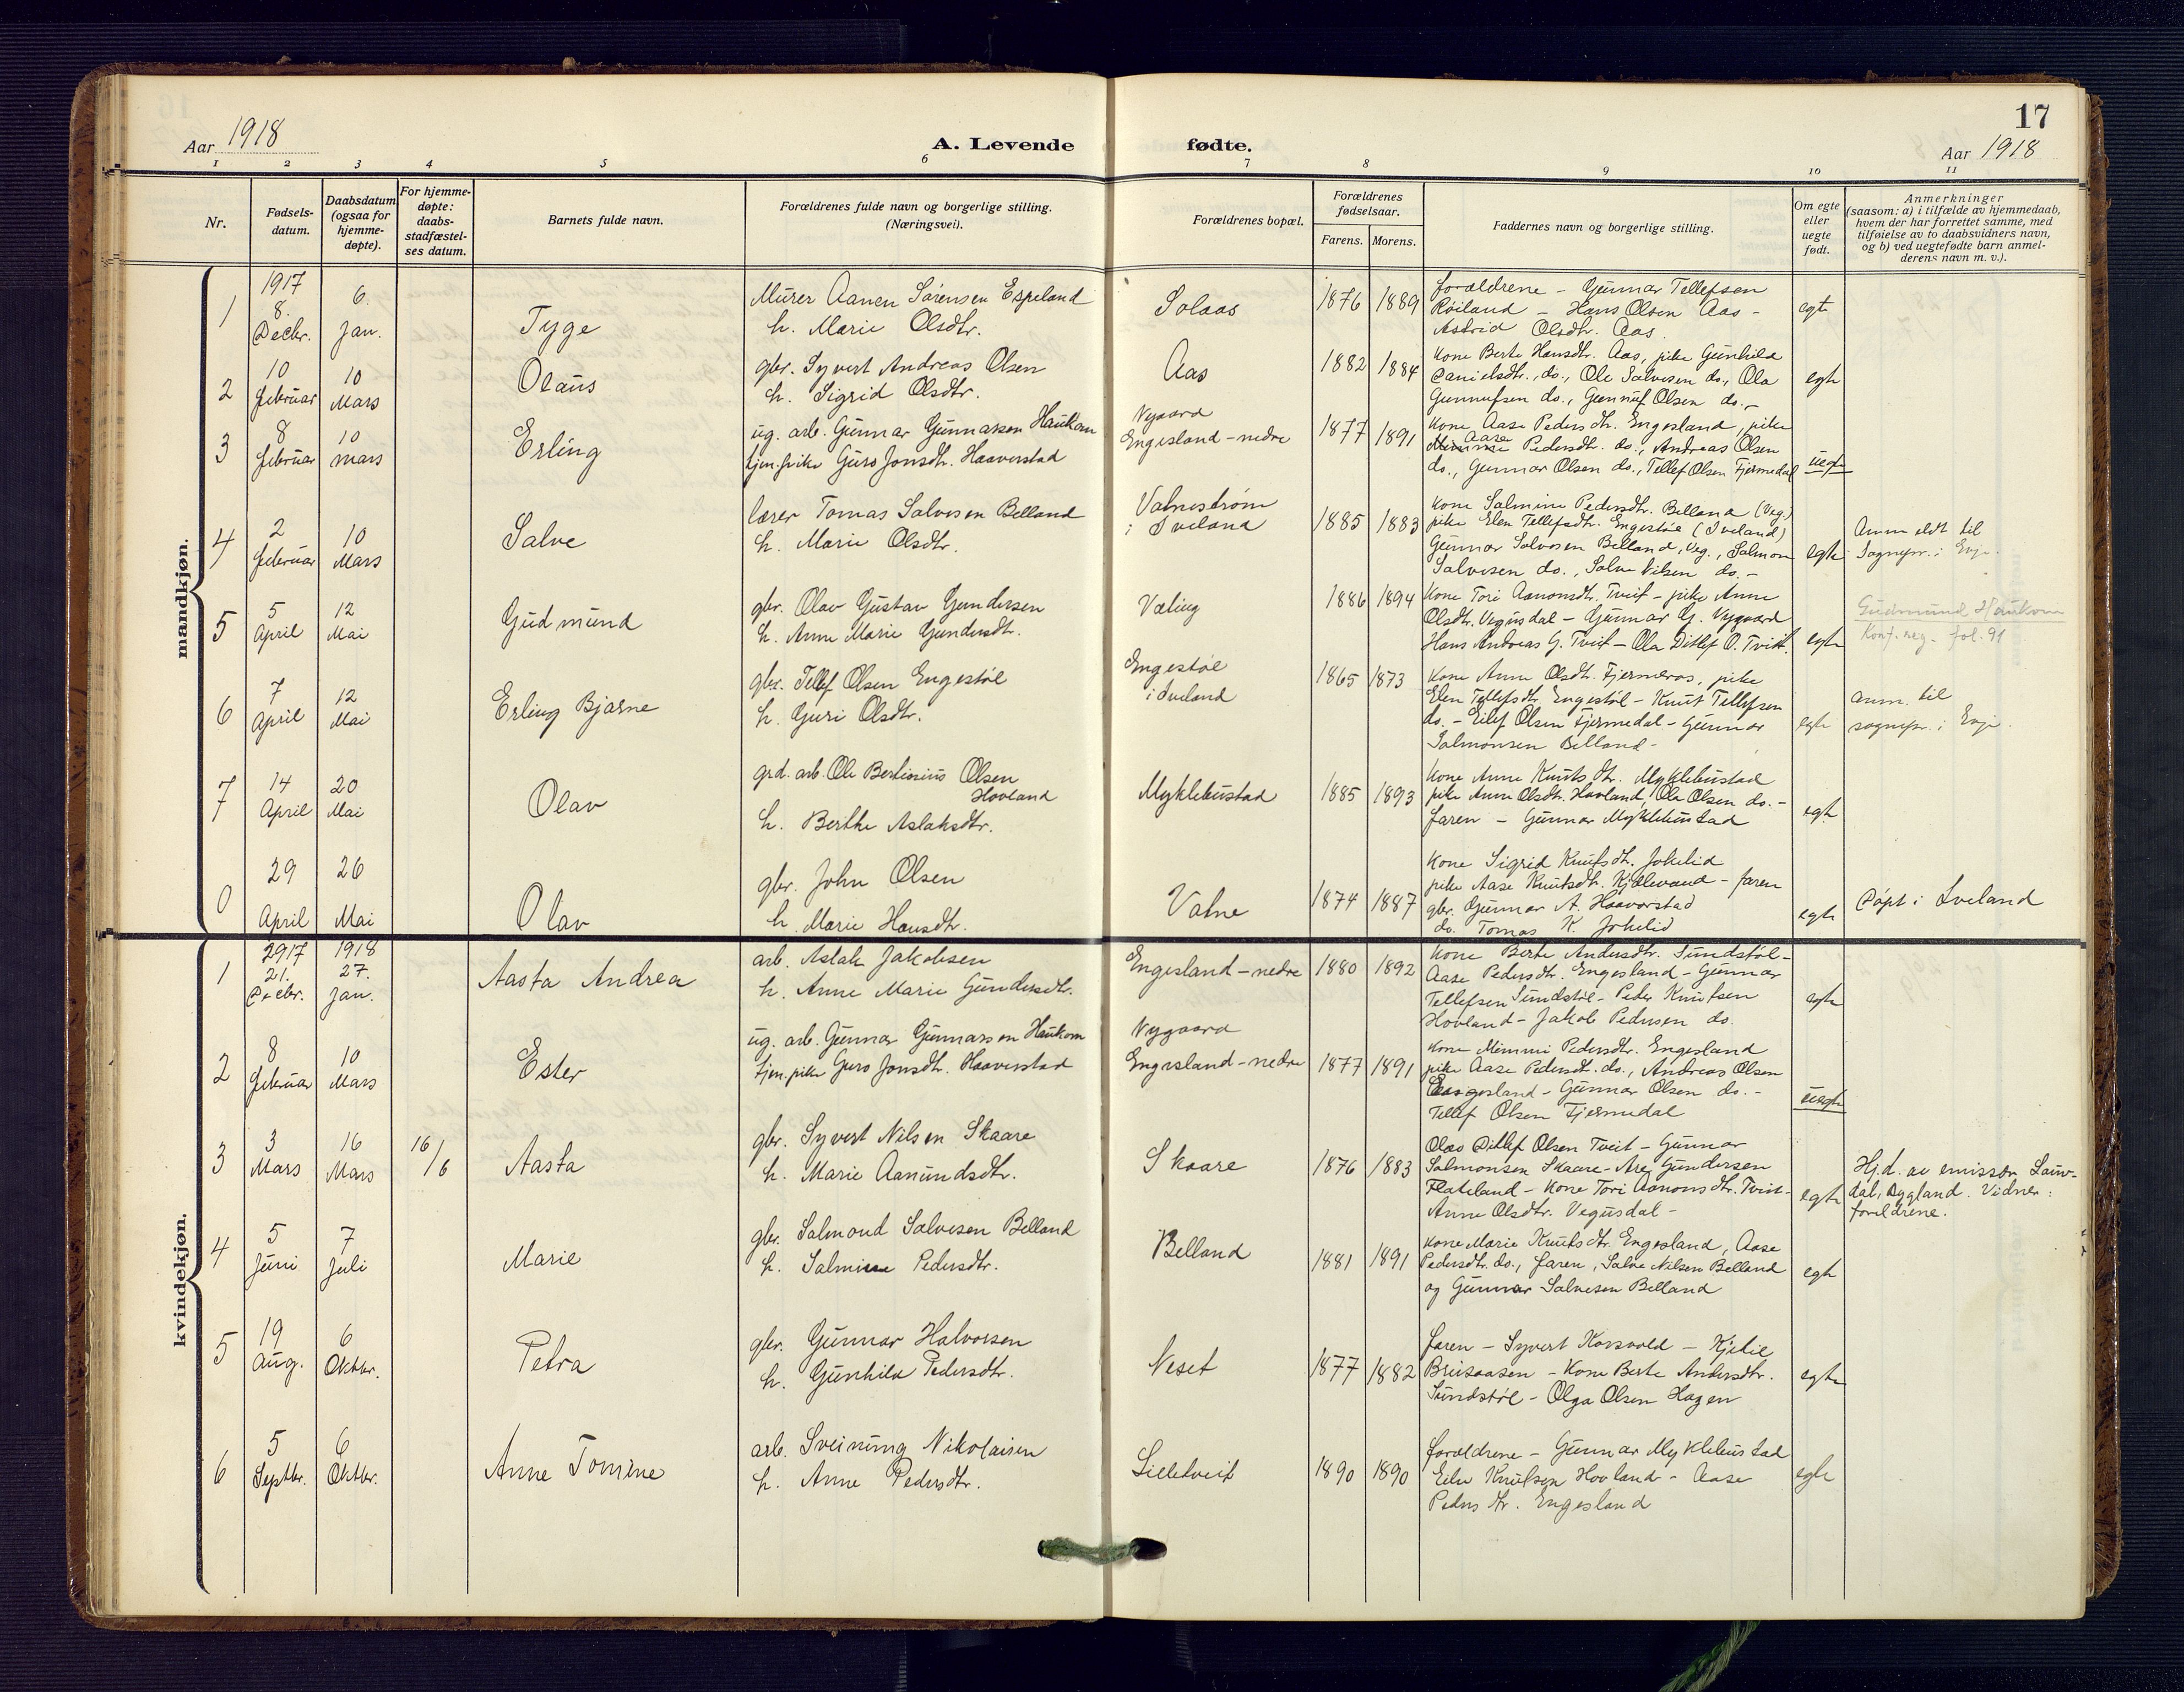 17
Aar 1918
A. Levende fødte.
Aar 1918
1 2 3 4 5 6 7 8 9 10 11
Nr.
Fødsels-
datum.
Daabsdatum
(ogsaa for
hjemme-
døpte).
For hjemme-
døpte:
daabs-
stadfæstel-
ses datum.
Barnets fulde navn.
Forældrenes fulde navn og borgerlige stilling.
(Næringsvei).
Forældrenes bopæl.
Forældrenes
fødselsaar.
Farens. Morens.
Faddernes navn og borgerlige stilling.
Om egte
eller
uegte
født.
Anmerkninger
(saasom: a) i tilfælde av hjemmedaab,
hvem der har forrettet samme, med
tilføielse av to daabsvidners navn,
og b) ved uegtefødte barn anmel-
derens navn m. v.).
mandkjøn.
1
1917
8.
Decbr.
6.
Jan.
Tyge
Murer Aanen Sørensen Espeland
h. Marie Olsdtr.
Solaas
1876 1889
forældrene - Gunnar Tellefsen
Røiland - Hans Olsen Aas -
Astrid Olsdtr. Aas
egte
2
10
februar
10
Mars
Olaus
gbr. Syvert Andreas Olsen
h. Sigrid Olsdtr.
Aas
1882 1884
Kone Berte Hansdtr. Aas, pike Gunhild
Danielsdtr., do., Ole Salvesen do., Ola
Gunnufsen do., Gunnuf Olsen do.,-
egte
3
8
februar
10
mars
Erling
ug. arb. Gunnar Gunnarsen Haukom
tjen.pike Guro Jonsdtr. Haaverstad
Nygaard
Engesland-nedre
1877 1891
Kone Aase Pedersdtr. Engesland, pike
Aase
Pedersdtr. do., Andreas Olsen
do., Gunnar Olsen do., Tellef Olsen Fjermedal
uegte
4
2
februar
10
Mars
Salve
lærer Tomas Salvesen Belland
h. Marie Olsdtr.
Vatnestrøm
i Iveland
1885 1883
Kone Salmine Pedersdtr. Belland (Veg.)
pike Elen Tellefsdtr. Engestøl (Iveland)
Gunnar Salvesen Belland, Veg., Salmon
Salvesen do., Salve Nilsen do.-
egte
Anm eldt til
Sognepr. i Evje.
5
5
April
12
Mai
Gudmund
gbr. Olav Gustav Gundersen
h. Anne Marie Gundersdtr.
Væting
1886 1894
Kone Tori Aanonsdtr. Tveit - pike Anne
Olsdtr. Vegusdal - Gunnar G. Nygaard
Hans Andreas G. Tveit - Ola Ditlef O. Tveit.
egte
Gudmund Haukom
Konf. reg. fol. 91
6
7
April
12
Mai
Erling Bjarne
gbr. Tellef Olsen Engestøl
h. Guri Olsdtr.
Engestøl
i Iveland
1865 1873
Kone Anne Olsdtr. Fjermeros, pike
Elen Tellefsdtr. Engestøl - Knut Tellefsen
do. - Eilef Olsen Fjermedal - Gunnar
Salmonsen Belland-
egte
anm. til
sognepr. i Evje.
7
14
April
20
Mai
Olav
grd. arb. Ole Bertinius Olsen
Hovland
h. Berthe Aslaksdtr.
Myklebustad
1885 1893
Kone Anne Knutsdtr. Myklebustad
pike Anne Olsdtr. Hovland, Ola Olsen do.-
faren - Gunnar Myklebustad
egte
29
April
26
Mai
Olav
gbr. John Olsen
h. Marie Hansdtr.
Vatne
1874 1887
Kone Sigrid Knutsdtr. Jokelid
pike Aase Knutsdtr. Kjetevand - faren
gbr. Gunnar A. Haavorstad
do. Tomas K. Jokelid
egte
Døpt i Iveland
kvindekjøn.
1
2917
21.
Decbr.
1918
27.
Jan.
Aasta Andrea
arb. Aslak Jakobsen
h. Anne Marie Gundersdtr.
Engesland-nedre
1880 1892
Kone Berte Andersdtr. Sundstøl-
Aase Pedersdtr. Engesland - Gunnar
Tellefsen Sundstøl - Peder Knutsen
Hovland - Jakob Pedersen do.
egte
2
8
februar
10
Mars
Ester
ug. arb. Gunnar Gunnarsen Haukom
tjen.pike Guro Jonsdtr. Haaverstad
Nygaard
Engesland-nedre
1877 1891
Kone Mimmi Pedersdtr. Engesland
pike Aase Pedersdt. do., Andreas Olsen
Engesland - Gunnar Olsen do.-
Tellef Olsen Fjermedal
uegte
3
3
Mars
16
Mars
16/6
Aasta
gbr. Syvert Nilsen Skaare
h. Marie Aanundsdtr.
Skaare
1876 1883
Olav Ditlef Olsen Tveit - Gunnar
Salmonsen Skaare - Are Gundersen
Flateland - Kone Tori Aanonsdtr. Tveit-
Anne Olsdtr. Vegusdal -
egte
Hj.d. av emissær Lauv-
dal, Bygland. Vidner:
foreldrene.
4
5
Juni
7
Juli
Marie
gbr. Salmond Salvesen Belland
h. Salmine Pedersdtr.
Belland
1881 1891
Kone Marie Knutsdtr. Engesland, Aase
Pedersdtr. do., faren, Salve Nilsen Belland
og Gunnar Salvesen Belland
egte
5
19
Aug.
6
Oktbr.
Petra
gbr. Gunnar Halvorsen
h. Gunhild Pedersdtr.
Neset
1877 1882
faren - Syvert Korsvold - Kjetil
Briisaasen - Kone Berte Andersdtr.
Sundstøl - Olga Olsen Hagen
egte
6
5
Septbr.
6
Oktbr.
Anne Tomine
arb. Sveinung Nikolaisen
h. Anne Pedersdtr.
Lilletveit
1890 1890
forældrene - Gunnar Myklebustad
Knutsen Hovland - Aase
Pedersdtr. Engesland
egte